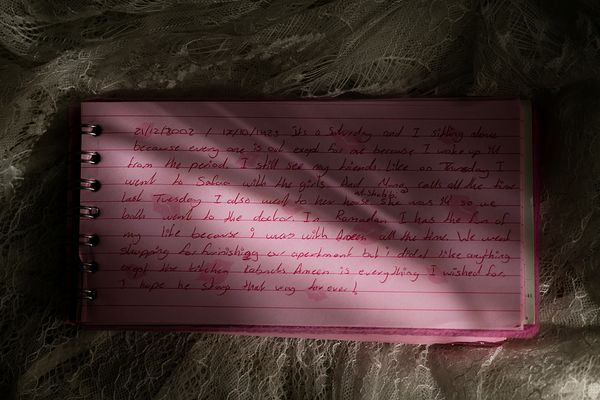 21/12/2002 / 17/10/1423 its a Saturday and I sitting alone
because every one is out exept for me because I woke up ill
from the period. I still see my friends like on Thursday I
went to Safaa with the girls And Muna calls all the time
last Tuesday I also went to her house she was ill so we
both went to the doctor. In Ramadan I has the fun of
my life because I was with Ameen all the time. We went
shopping for furnishing our apartment but i didn't like anything
exept the kitchen Ameen is everything I wished for
I hope he stays that way for ever!